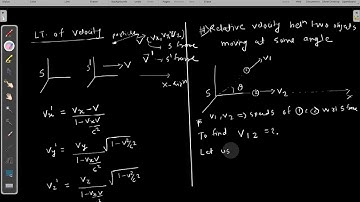 LT. of Velocity
V⃗ (Vx, Vy, Vz)
S frame
V⃗' - S' frame
S
S'
V
x-axis
Vx' = Vx - V / 1 - VxV/c²
Vy' = Vy √1-V²/c² / 1 - VxV/c²
Vz' = Vz √1-V²/c² / 1 - VxV/
Relative velocity betn two objects
moving at some angle
① V1
S
θ
② V2
x
V1, V2 => speeds of ① & ② w.r.t S frame
To find V12 = ?
Let us